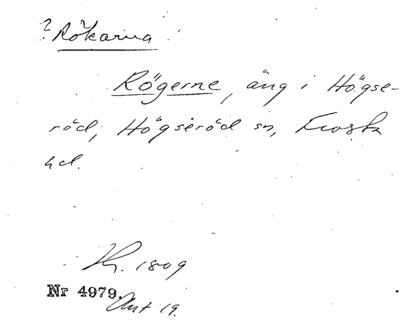 ? Rökarna
Rögerne, äng i Högse-
röd, Högseröd sn, Frosta
hd.
Kr. 1809
Nr 4979. Akt 19.